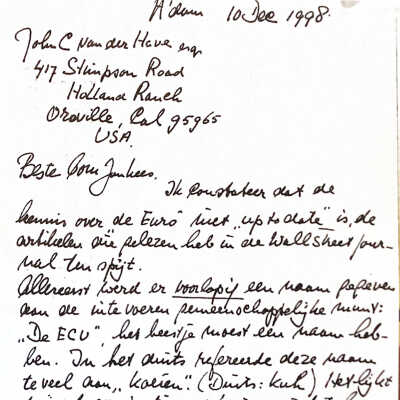 A'dam 10 Dec 1998.
John C van der Have esq.
417 Stimpson Road
Holland Ranch
Oroville, Cal 95965
USA.
Beste Com Jankees.
Ik constateer dat de
kennis over de Euro niet „up to date" is, de
artikelen die gelezen heb in de Wallstreet Jour-
nal ten spijt.
Allereerst werd er voorlopig een naam gegeven
aan de in te voeren gemeenschappelijke munt:
„De ECU", het beestje moest een naam heb-
ben. In het duits refereerde deze naam
te veel aan „koeien". (Duits: Kuh) Het lijkt